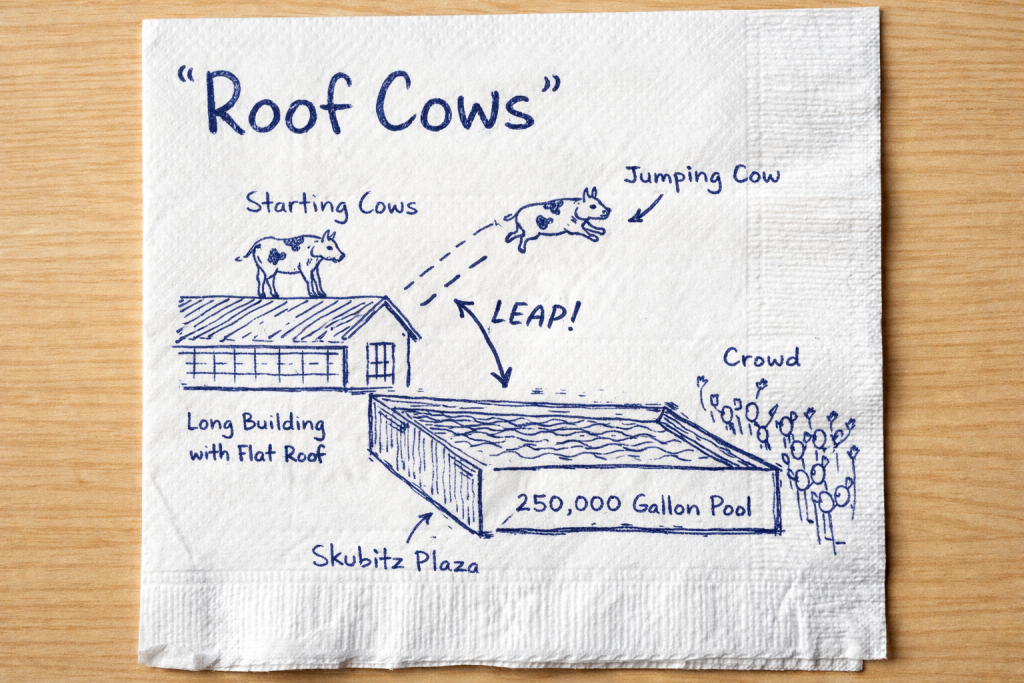 "Roof Cows"
Jumping Cow
Starting Cows
LEAP!
Crowd
Long Building
with Flat Roof
250,000 Gallon Pool
Skubitz Plaza